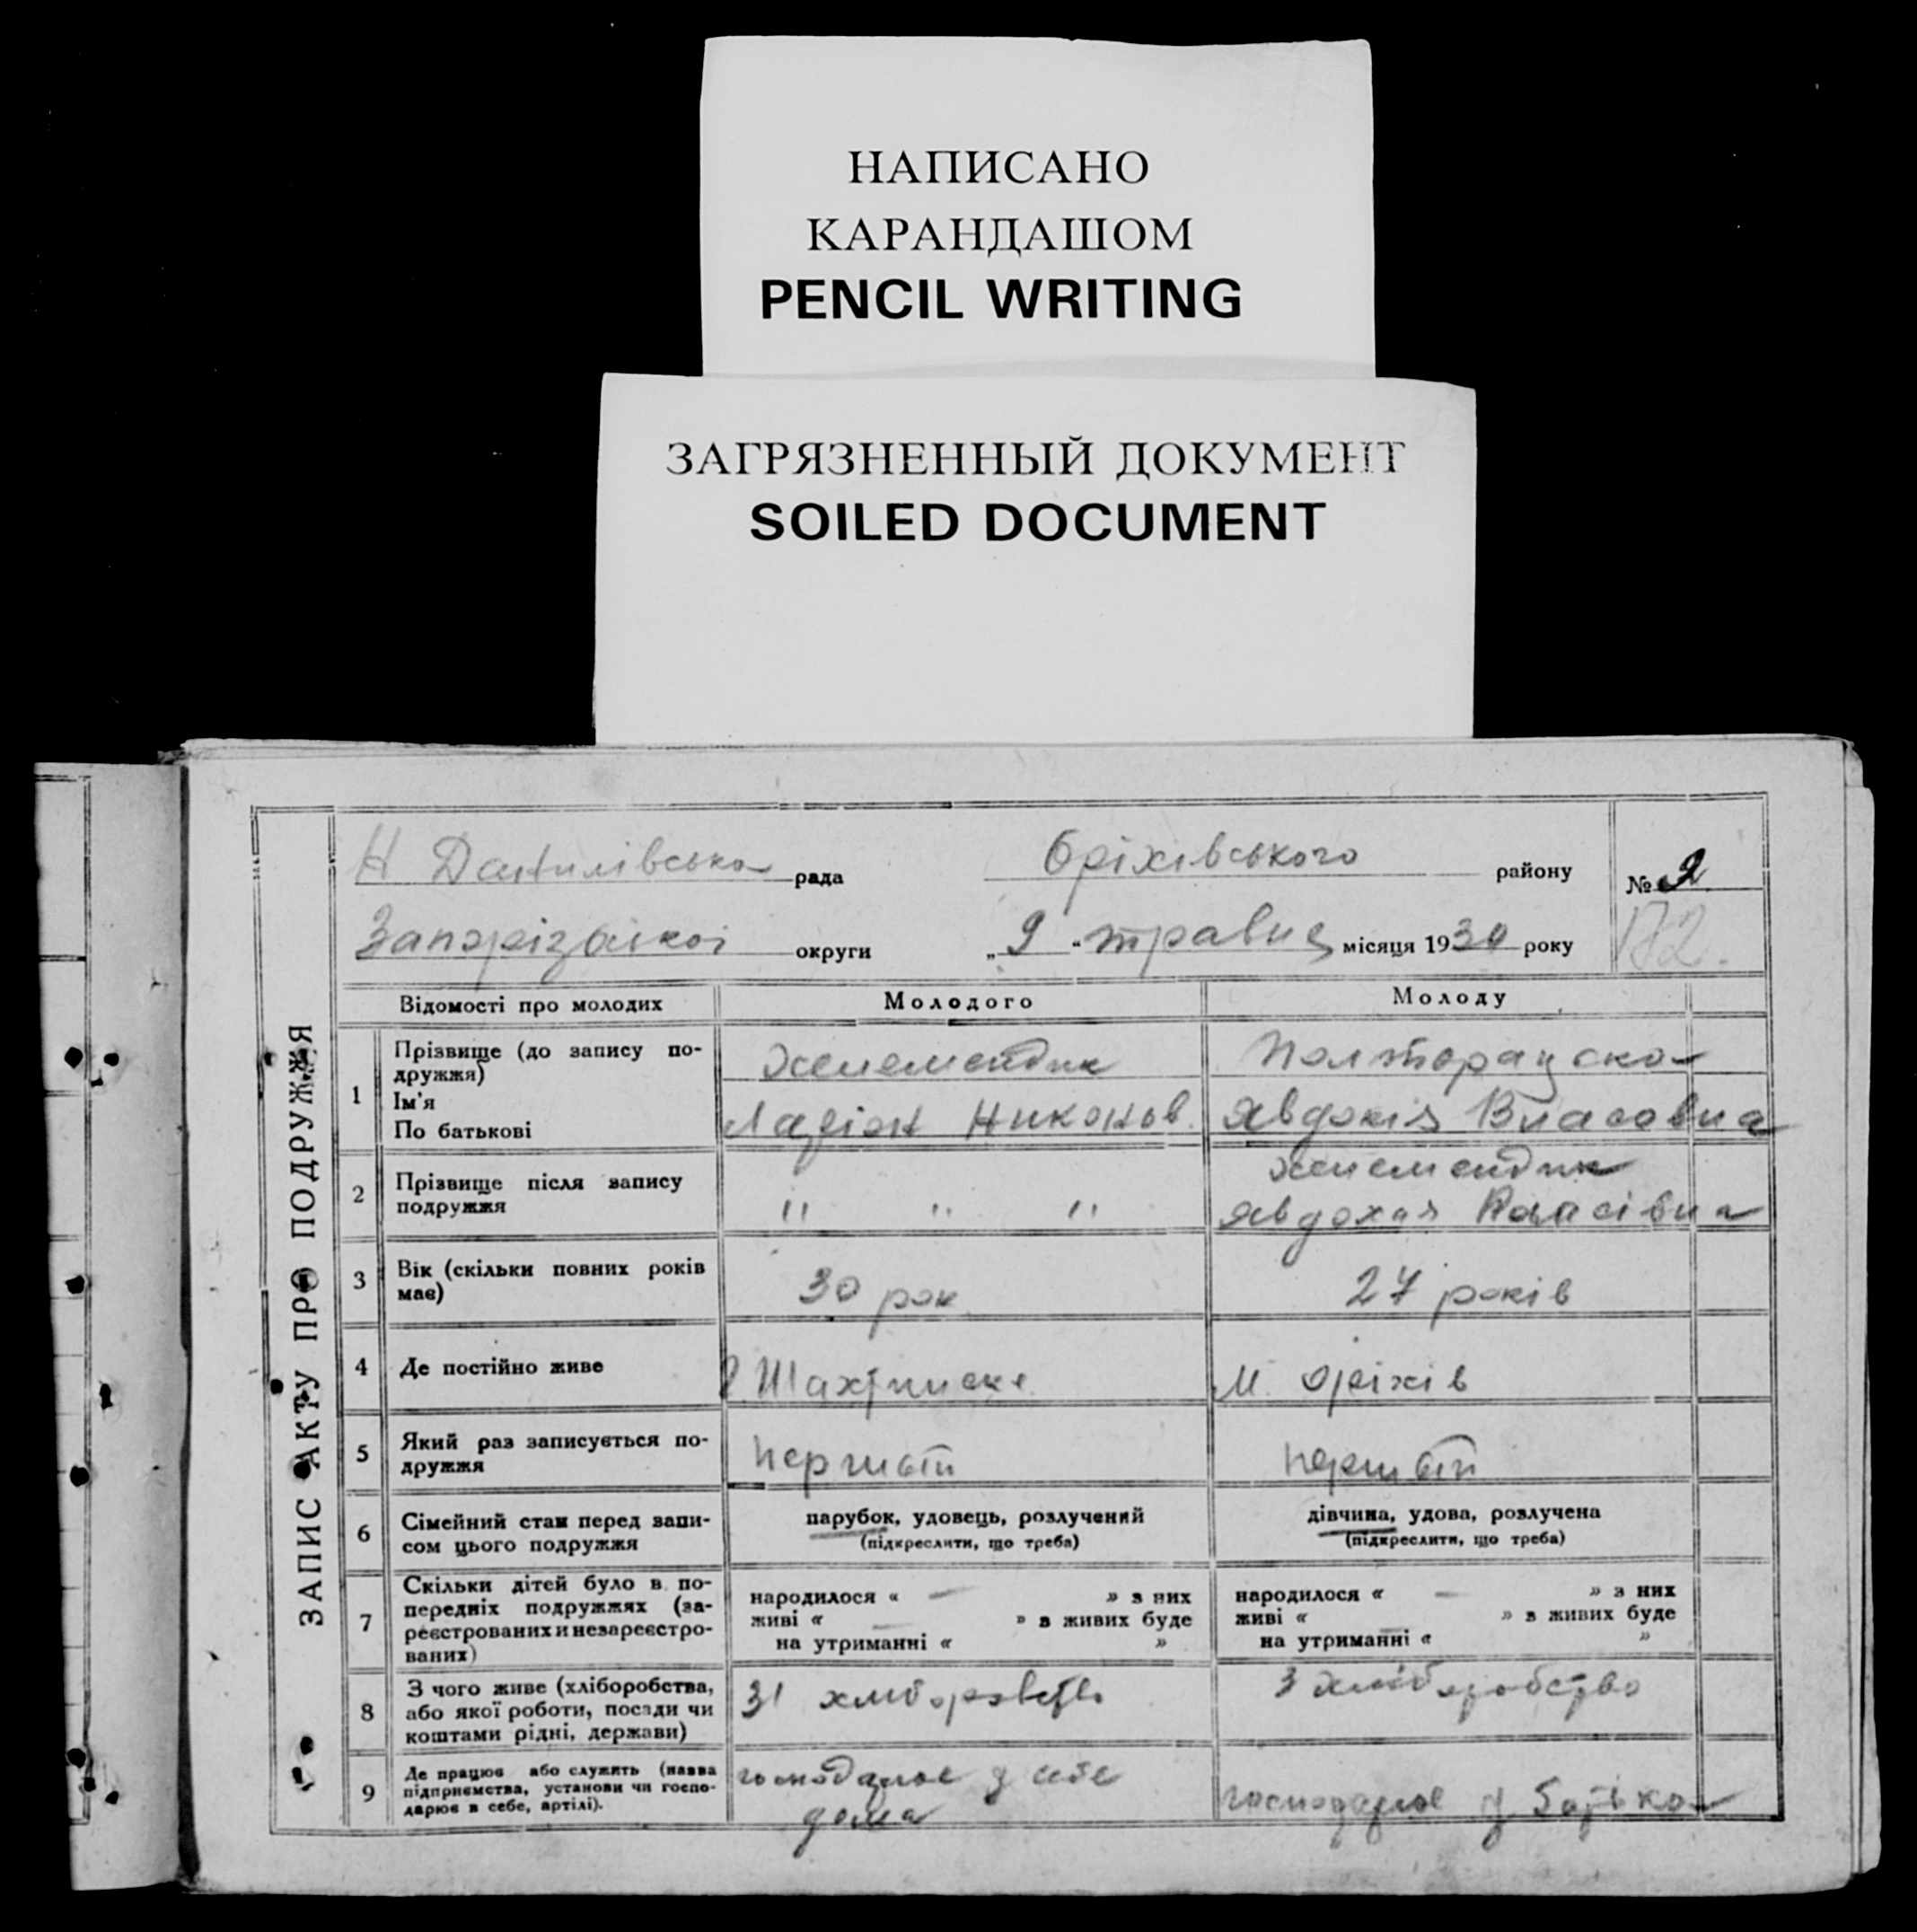 НАПИСАНО
КАРАНДАШОМ
PENCIL WRITING
ЗАГРЯЗНЕННЫЙ ДОКУМЕНТ
SOILED DOCUMENT
ЗАПИС АКТУ ПРО ПОДРУЖЖЯ
Н Данилівська рада Оріхівського району № 2
округи „9“ травня місяця 1930 року 172.
Відомості про молодих Молодого Молоду
1 Прізвище (до запису подружжя) Полторацска
Ім'я
По батькові Ларіон Никонов. Явдокія Власовна
2 Прізвище після запису подружжя " " "
3 Вік (скільки повних років має) 30 рок 27 років
4 Де постійно живе М. Оріхів
5 Який раз записується подружжя
6 Сімейний стан перед записом цього подружжя парубок, удовець, розлучений дівчина, удова, розлучена
(підкреслити, що треба) (підкреслити, що треба)
7 Скільки дітей було в попередніх подружжях (зареєстрованих и незареєстрованих) народилося « — » з них народилося « — » з них
живі « — » в живих буде живі « » в живих буде
на утриманні « » на утриманні « — »
8 З чого живе (хліборобства, або якої роботи, посади чи коштами рідні, держави) З хліборобства
9 Де працює або служить (назва підприємства, установи чи господарює в себе, артілі). господарює у себе
дома господарює у батька